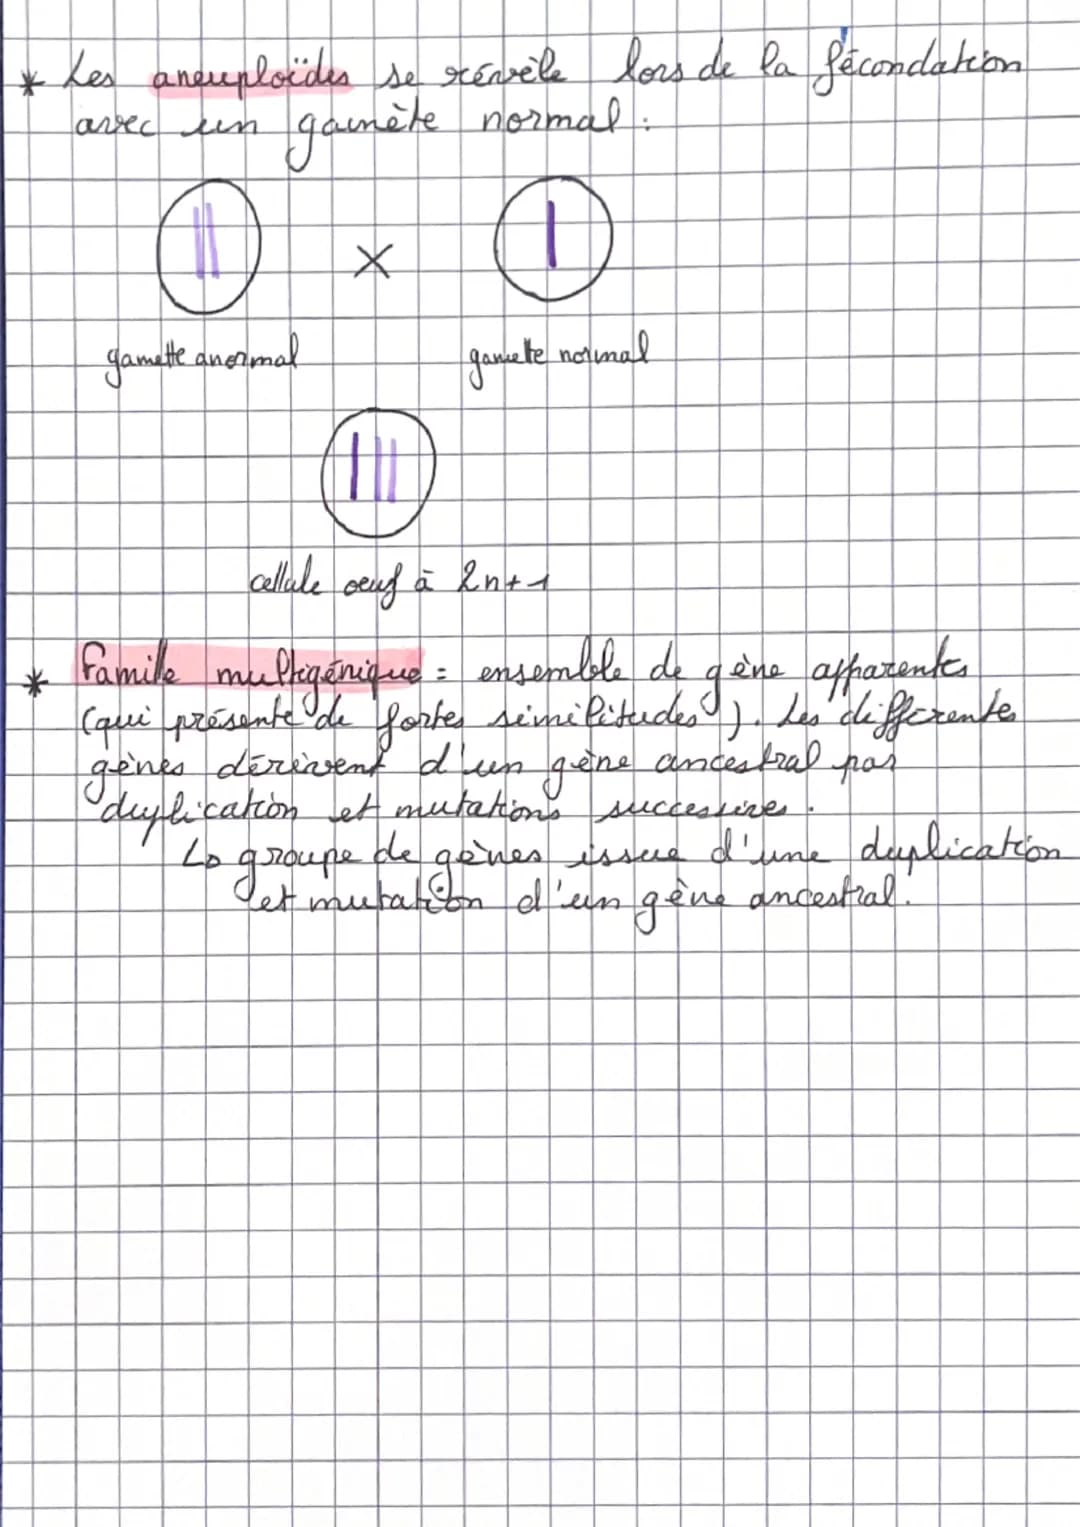 * Les aneuploïdes se révèle lors de la fécondation
avec un gamète normal :
×
gamette anormal
gamette normal
cellule oeuf à 2n+1
* Famille multigénique = ensemble de gène apparentes
(qui présente de fortes similitudes). Les différentes
gènes dérivent d'un gène ancestral par
duplication et mutations successive.
↳ groupe de gènes issue d'une duplication
et mutation d'un gène ancestral.